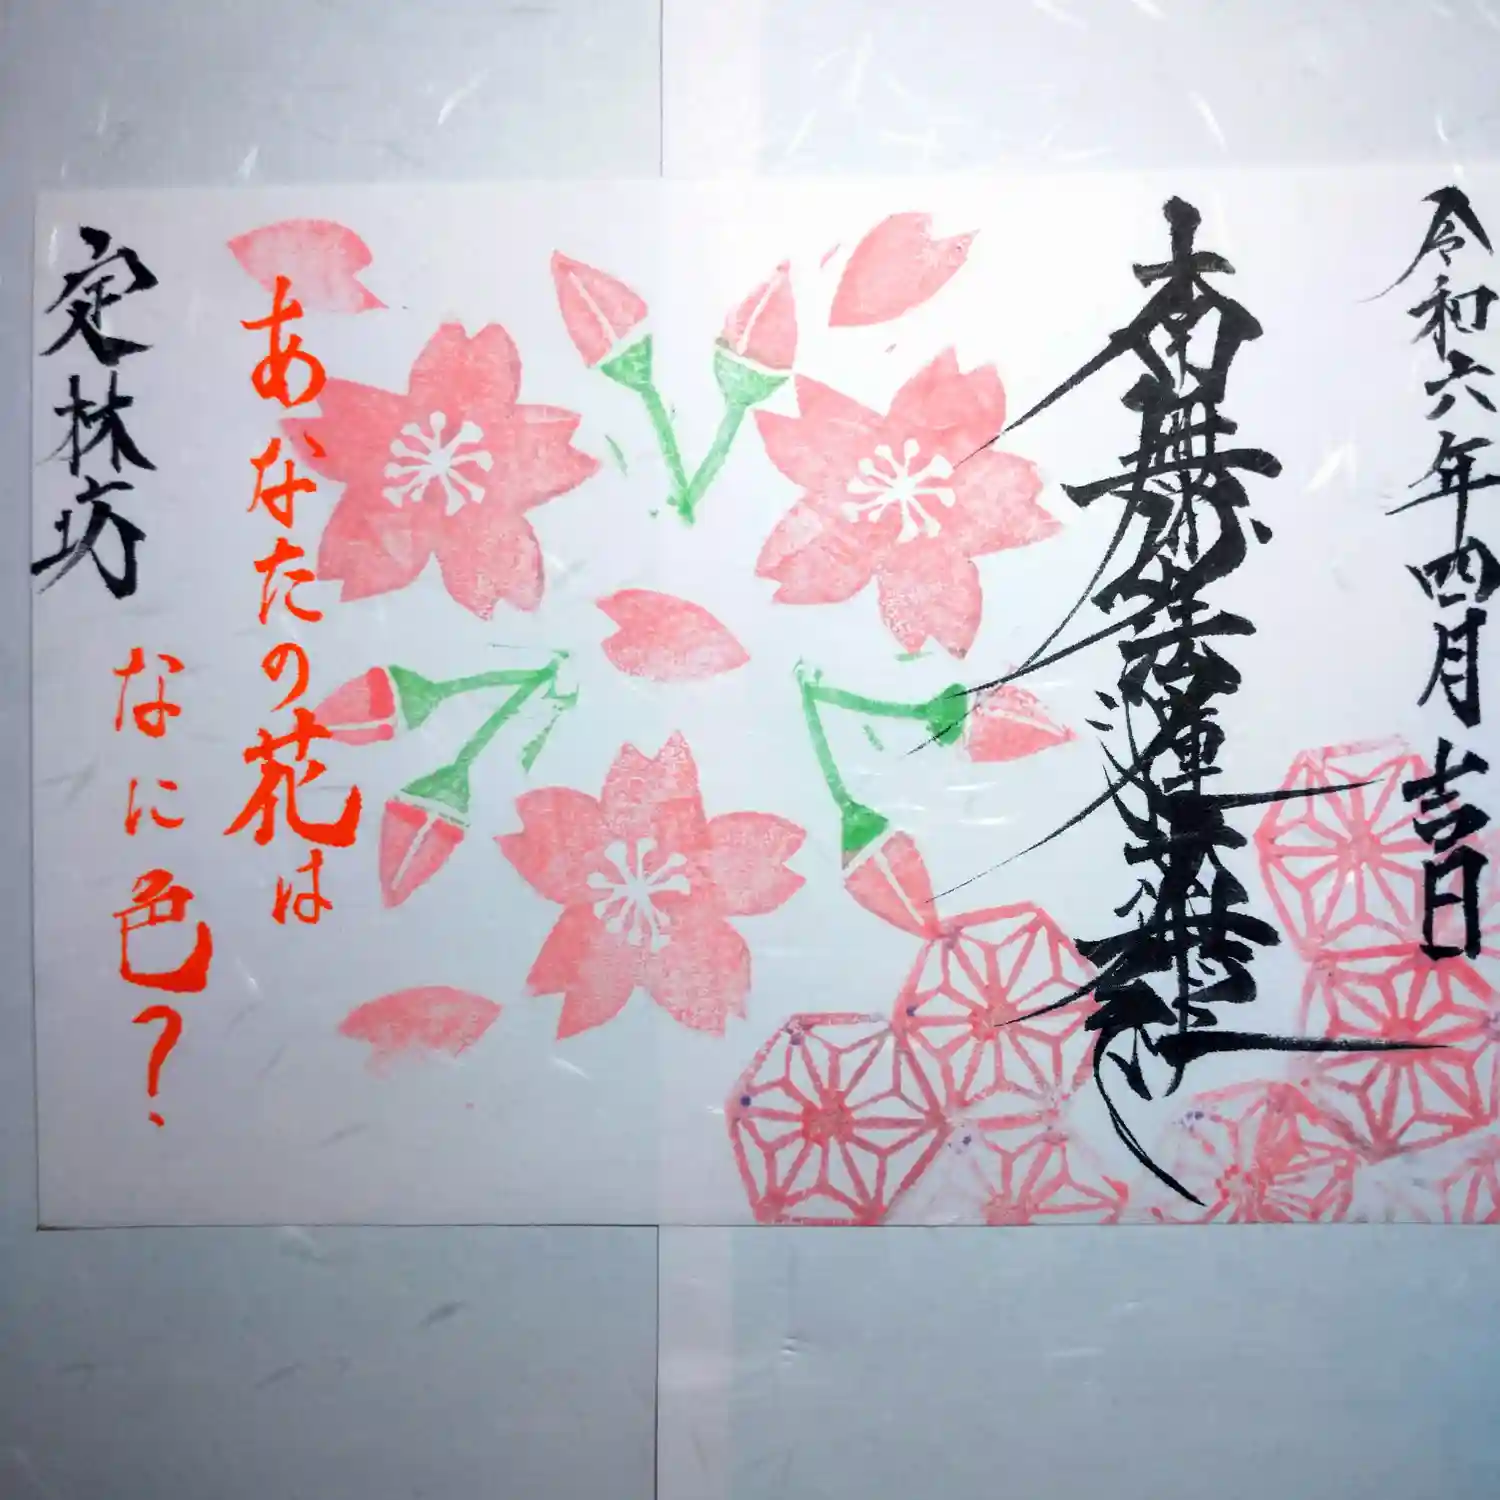 令和六年四月吉日
南無妙法蓮華経
あなたの花は
なに色？
定林坊